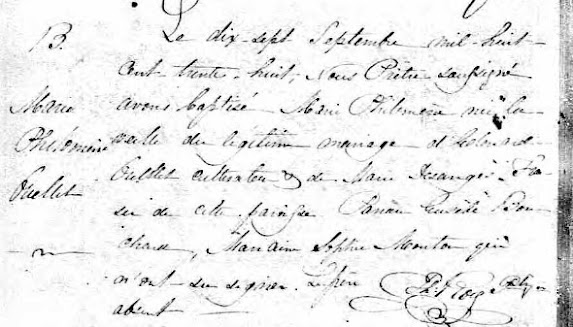 B.
Marie
Philomène
Ouellet
Le dix-sept Septembre mil-huit-
cent-trente-huit, Nous Prêtre soussigné
avons baptisé Marie Philomène née la
veille du légitime mariage d'
Ouellet cultivateur & de Marie Desanges
de cette paroisse. Parrain Eusèbe Bou-
chard, Marraine Sophie Menton qui
n'ont su signer. Le père
absent